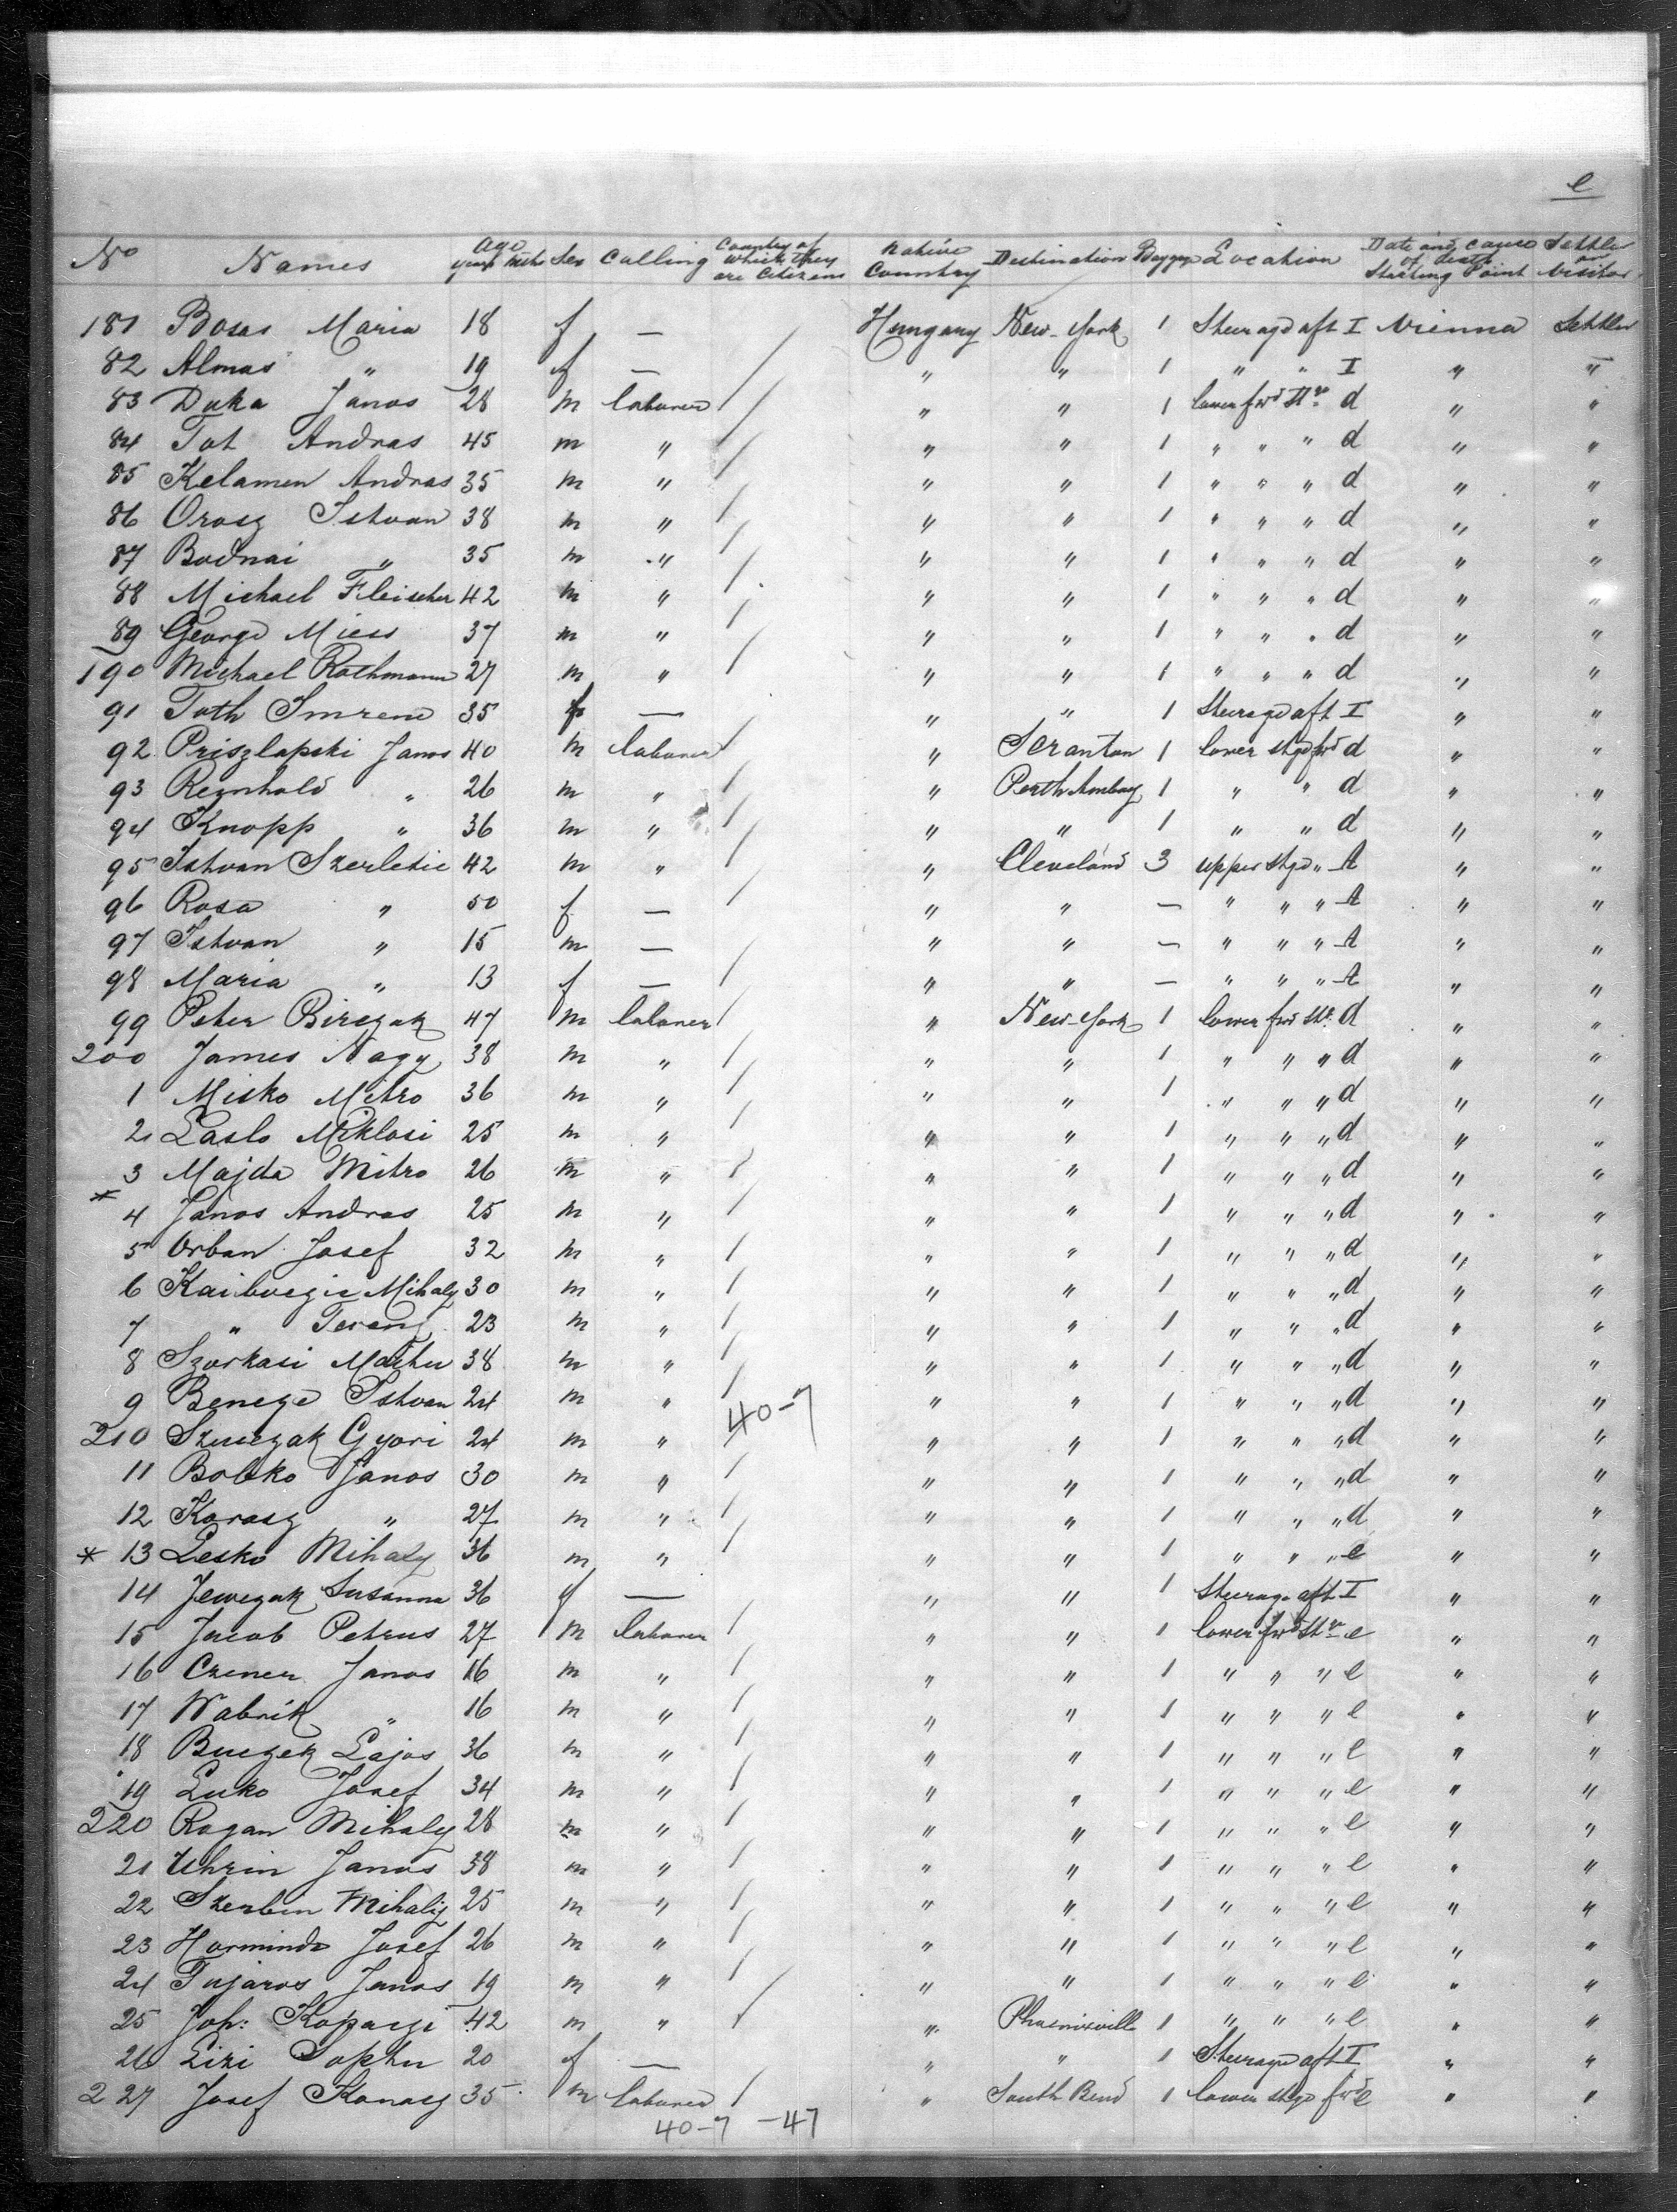 e
No Names Age years Mths Sex Calling Country of which they are Citizens Native Country Destination Baggage Location Date and cause of death Starting Point Settler or Visitor
181 Bosas Maria 18 f — Hungary New-York 1 Steerage aft I Vienna Settler
82 Almas " 19 f — " " 1 " " I " "
83 Duka Janos 28 m laborer " " 1 lower fwd Stge d " "
84 Tot Andras 45 m " " " 1 " " " d " "
85 Kelamen Andras 35 m " " " 1 " " " d " "
86 Orosz Istvan 38 m " " " 1 " " " d " "
87 Bodnai " 35 m " " " 1 " " " d " "
88 Michael Fleischer 42 m " " " 1 " " " d " "
89 George Miess 37 m " " " 1 " " " d " "
190 Michael Rothmann 27 m " " " 1 " " " d " "
91 Toth Imrene 35 f — " " 1 Steerage aft I " "
92 Priszlapski Janos 40 m laborer " Scranton 1 lower stge fwd d " "
93 Reinhold " 26 m " " Perth Amboy 1 " " d " "
94 Knopp " 36 m " " " 1 " " d " "
95 Istvan Szerletic 42 m " " Cleveland 3 upper stge " A " "
96 Rosa " 50 f — " " — " " " A " "
97 Istvan " 15 m — " " — " " " A " "
98 Maria " 13 f — " " — " " " A " "
99 Peter Birczak 47 m laborer " New-York 1 lower fwd Stge d " "
200 James Nagy 38 m " " " 1 " " " d " "
1 Misko Mitro 36 m " " " 1 " " " d " "
2 Laslo Miklosi 25 m " " " 1 " " " d " "
3 Majda Mitro 26 m " " " 1 " " " d " "
* 4 Janos Andras 25 m " " " 1 " " " d " "
5 Orban Josef 32 m " " " 1 " " " d " "
6 Mihaly 30 m " " " 1 " " " d " "
7 " Ferenz 23 m " " " 1 " " " d " "
8 Szorkasi 38 m " " " 1 " " " d " "
9 Benege Istvan 24 m " " " 1 " " " d " "
40-7
210 Szuczak Gyori 24 m " " " 1 " " " d " "
11 Bobko Janos 30 m " " " 1 " " " d " "
12 Korasz " 27 m " " " 1 " " " d " "
* 13 Lesko Mihaly 36 m " " " 1 " " " e " "
14 Jewczak Susanna 36 f — " " 1 Steerage aft I " "
15 Jacob Petrus 27 m laborer " " 1 lower fwd Stge e " "
16 Czener Janos 16 m " " " 1 " " " e " "
17 Wabrik " 16 m " " " 1 " " " e " "
18 Buczek Lajos 36 m " " " 1 " " " e " "
19 Luko Josef 34 m " " " 1 " " " e " "
220 Rogan Mihaly 28 m " " " 1 " " " e " "
21 Uhrin Janos 38 m " " " 1 " " " e " "
22 Szerbin Mihaly 25 m " " " 1 " " " e " "
23 Josef 26 m " " " 1 " " " e " "
24 Tujaros Janos 19 m " " " 1 " " " e " "
25 Joh: Kopaczi 42 m " " Phoenixville 1 " " " e " "
26 Lizi Sophu 20 f — " " 1 Steerage aft I " "
227 Josef Konasz 35 m laborer " South Bend 1 lower stge fwd e " "
40-7 -47